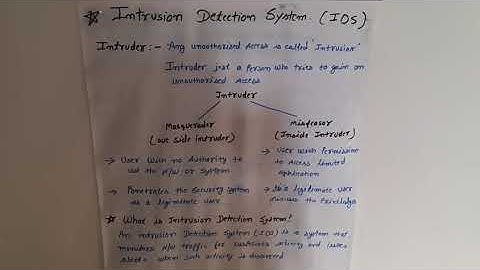 * Intrusion Detection System. (IDS)
Intruder :- Any unauthorised Access is called 'Intrusion'
Intruder just a Person who tries to gain an
unauthorised Access
Intruder
Masquerader
(out side Intruder)
→ User with no Authority to
use the N/W or System
→ Penetrates the Security System
as a legitimate user
Misfeasor
(Inside Intruder)
→ User with Permission
to Access limited
application
→ Its a legitimate user
misuses the Priviledge
* What is Intrusion Detection System?
An intrusion Detection System (IDS) is a system that
monitors N/W traffic for suspicious activity and issues
alerts when such activity is discovered